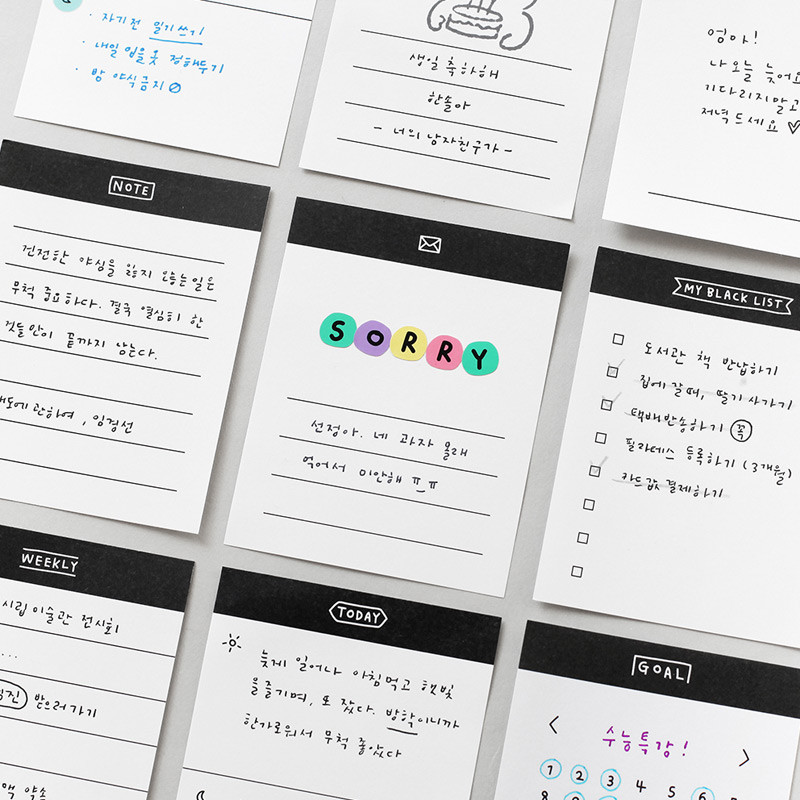 · 자기전 일기쓰기
· 내일 입을옷 정해두기
· 밤 야식금지
생일 축하해
한솔아
- 너의 남자친구가 -
엄마!
나 오늘 늦어요
기다리지말고
저녁드세요
NOTE
건전한 야심을 잃지 않는일은
무척 중요하다. 결국 열심히 한
것들만이 끝까지 남는다.
태도에 관하여, 임경선
SORRY
선정아. 네 과자 몰래
먹어서 미안해 ㅠㅠ
MY BLACK LIST
도서관 책 반납하기
집에 갈때, 딸기 사가기
택배반송하기 꼭
필라테스 등록하기 (3개월)
카드값 결제하기
WEEKLY
시립 미술관 전시회
...
받으러가기
약속
TODAY
늦게 일어나 아침먹고 햇빛
을 즐기며, 또 잤다. 방학이니까
한가로워서 무척 좋았다
GOAL
< 수능특강! >
1 2 3 4 5 6
8